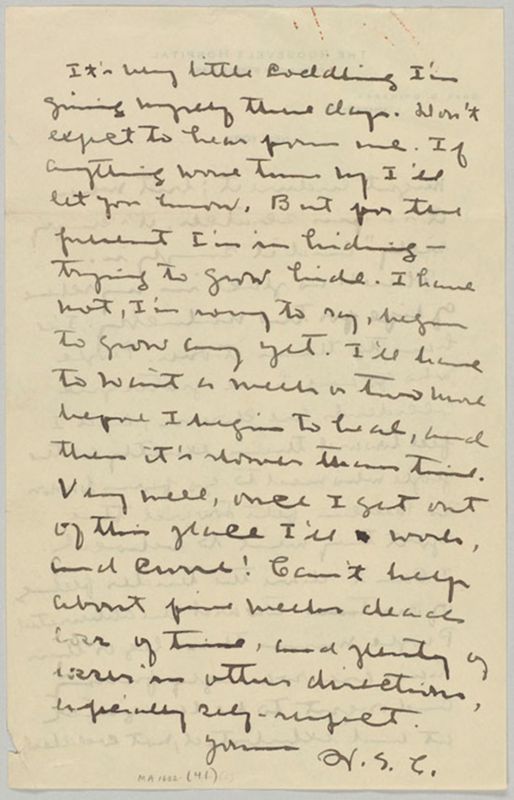 It's very little coddling I'm
giving myself these days. Don't
expect to hear from me. If
anything worse turns up I'll
let you know. But for the
present I'm in hiding —
trying to grow hide. I have
not, I'm sorry to say, begun
to grow any yet. I'll have
to wait a week or two more
before I begin to heal, and
then it's slower than time.
Very well, once I get out
of this place I'll work,
and curse! Can't help
about five weeks dead
loss of time, and plenty of
losses in other directions,
especially self-respect.
Yours
W. S. C.
MA 1602 (41)